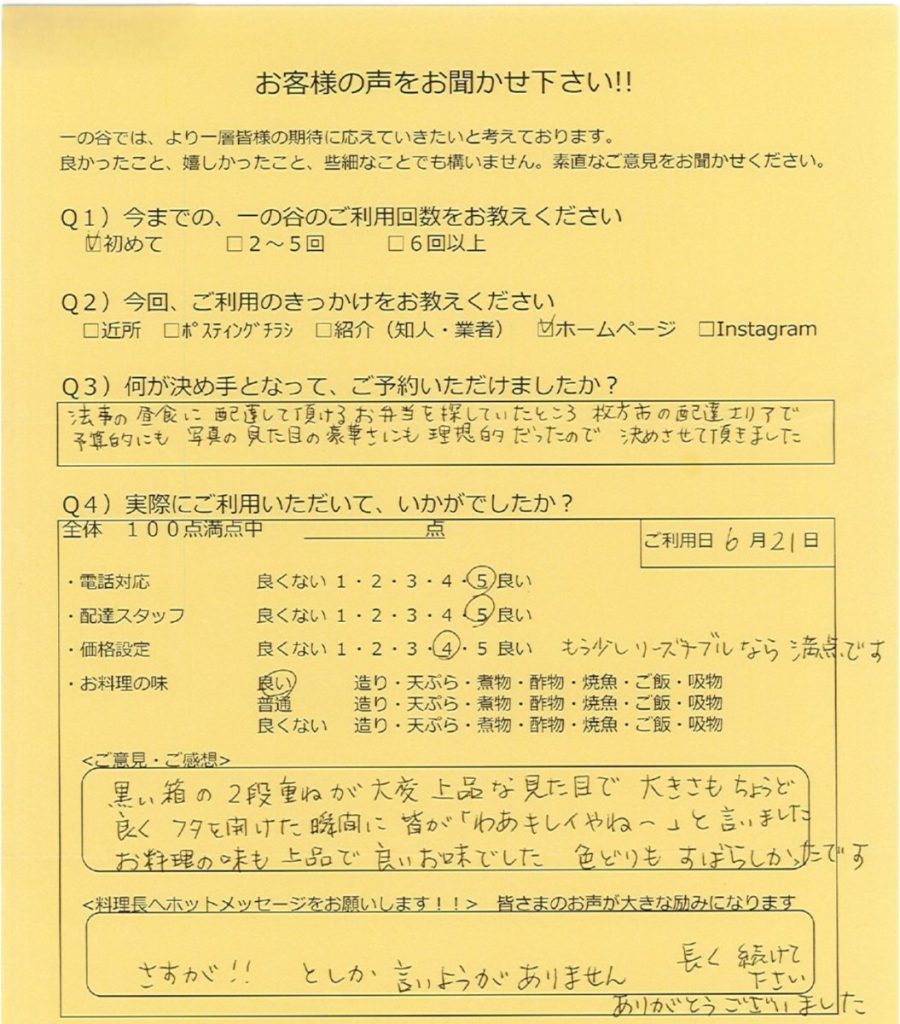 お客様の声をお聞かせ下さい!!
一の谷では、より一層皆様の期待に応えていきたいと考えております。
良かったこと、嬉しかったこと、些細なことでも構いません。素直なご意見をお聞かせください。
Q1）今までの、一の谷のご利用回数をお教えください
☑初めて □2～5回 □6回以上
Q2）今回、ご利用のきっかけをお教えください
□近所 □ﾎﾟｽﾃｨﾝｸﾞﾁﾗｼ □紹介（知人・業者） ☑ホームページ □Instagram
Q3）何が決め手となって、ご予約いただけましたか？
法事の昼食に配達して頂けるお弁当を探していたところ 枚方市の配達エリアで
予算的にも 写真の見た目の豪華さにも理想的だったので 決めさせて頂きました
Q4）実際にご利用いただいて、いかがでしたか？
全体 100点満点中 ＿＿＿＿＿＿点
ご利用日 6月21日
・電話対応 良くない 1・2・3・4・5 良い
・配達スタッフ 良くない 1・2・3・4・5 良い
・価格設定 良くない 1・2・3・4・5 良い もう少しリーズナブルなら満点です
・お料理の味 良い 造り・天ぷら・煮物・酢物・焼魚・ご飯・吸物
普通 造り・天ぷら・煮物・酢物・焼魚・ご飯・吸物
良くない 造り・天ぷら・煮物・酢物・焼魚・ご飯・吸物
<ご意見・ご感想>
黒い箱の2段重ねが大変上品な見た目で 大きさもちょうど
良く フタを開けた瞬間に皆が「わあキレイやねー」と言いました
お料理の味も上品で良いお味でした 色どりもすばらしかったです
<料理長へホットメッセージをお願いします！！> 皆さまのお声が大きな励みになります
さすが!! としか言いようがありません
長く続けて
下さい
ありがとうございました